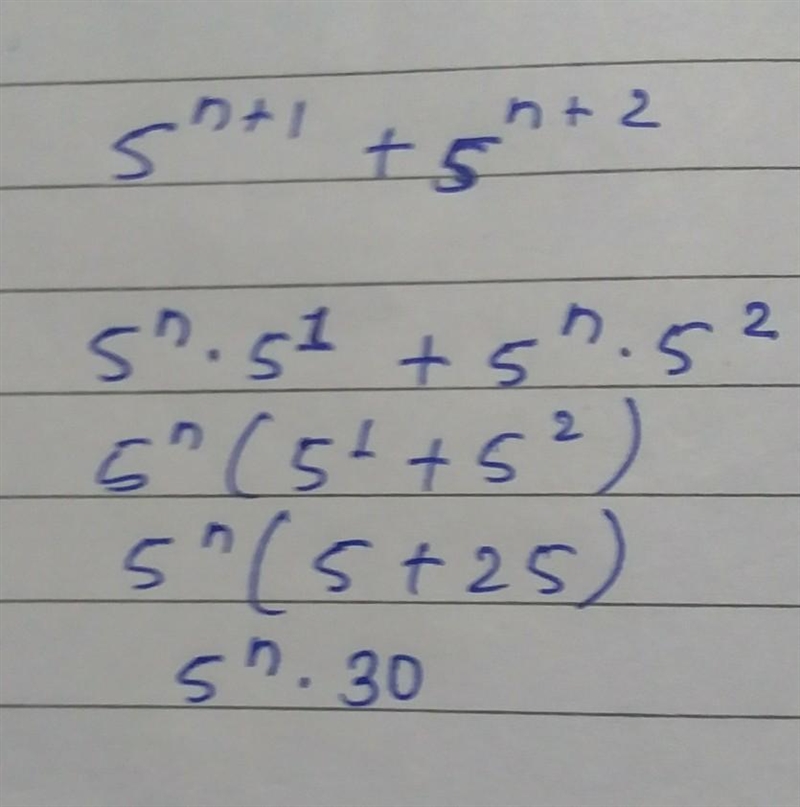 5^{n+1} + 5^{n+2}
5^n · 5^1 + 5^n · 5^2
5^n (5^1 + 5^2)
5^n (5 + 25)
5^n · 30